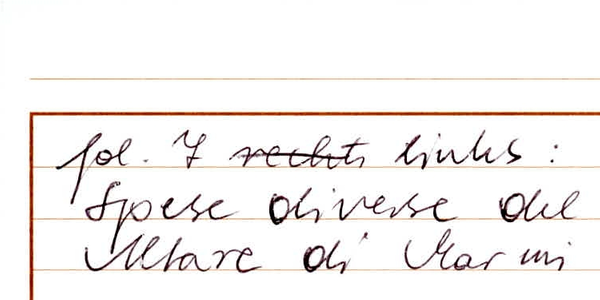 fol. 7 rechts links :
Spese diverse del
Altare di Marmi